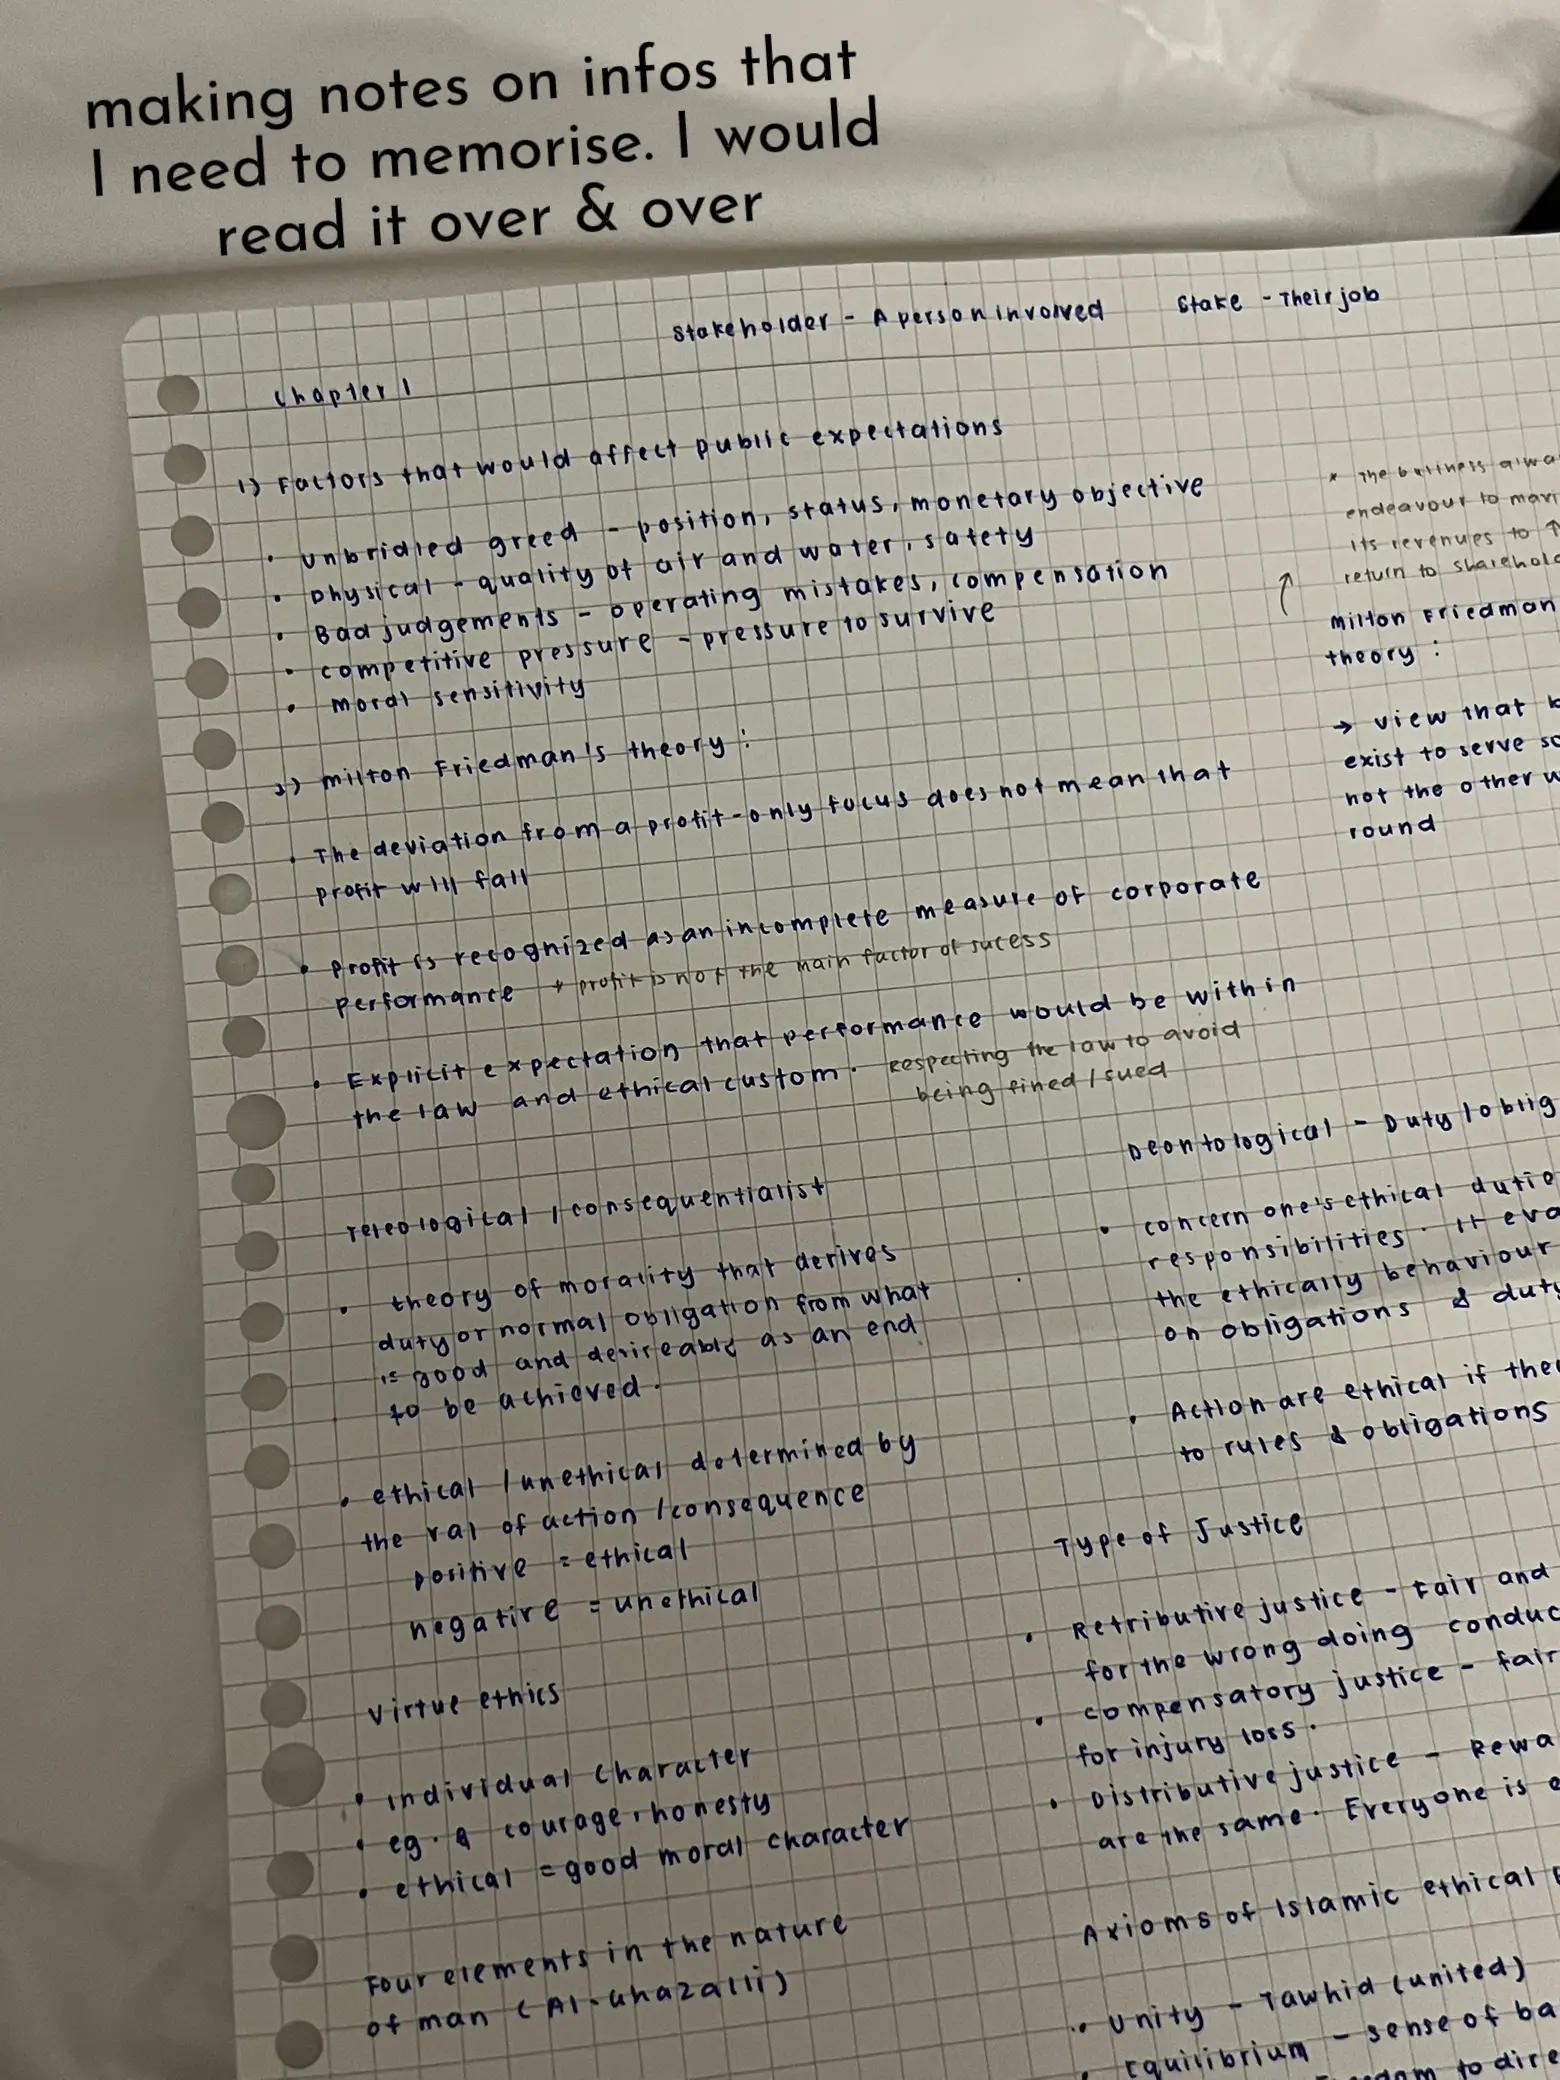 making notes on infos that
I need to memorise. I would
read it over & over
Stakeholder - A person involved Stake - Their job
Chapter 1
1) Factors that would affect public expectations
• unbridled greed - position, status, monetary objective
• physical - quality of air and water, safety
• Bad judgements - operating mistakes, compensation
• competitive pressure - pressure to survive
• moral sensitivity
2) milton Friedman's theory :
• The deviation from a profit-only focus does not mean that
profit will fall
• profit is recognized as an incomplete measure of corporate
performance * profit is not the main factor of sucess
• Explicit expectation that performance would be within
the law and ethical custom. Respecting the law to avoid
being fined / sued
* The business
endeavour to
its revenues to ↑
return to
Milton Friedman
theory :
→ view that
exist to serve
not the other
round
Teleological / consequentialist
• theory of morality that derives
duty or normal obligation from what
is good and desireable as an end
to be achieved.
• ethical / unethical determined by
the val of action / consequence
positive = ethical
negative = unethical
Virtue ethics
• individual character
• eg. & courage, honesty
• ethical = good moral character
Four elements in the nature
of man (Al-Ghazalli)
Deontological - Duty /
• concern one's ethical
responsibilities. It
the ethically behaviour
on obligations & duty
• Action are ethical if
to rules & obligations
Type of Justice
• Retributive justice - Fair and
for the wrong doing
• compensatory justice - fair
for injury loss.
• Distributive justice -
are the same. Everyone is
Axioms of Islamic ethical
• Unity - Tawhid (united)
• Equilibrium - sense of
to